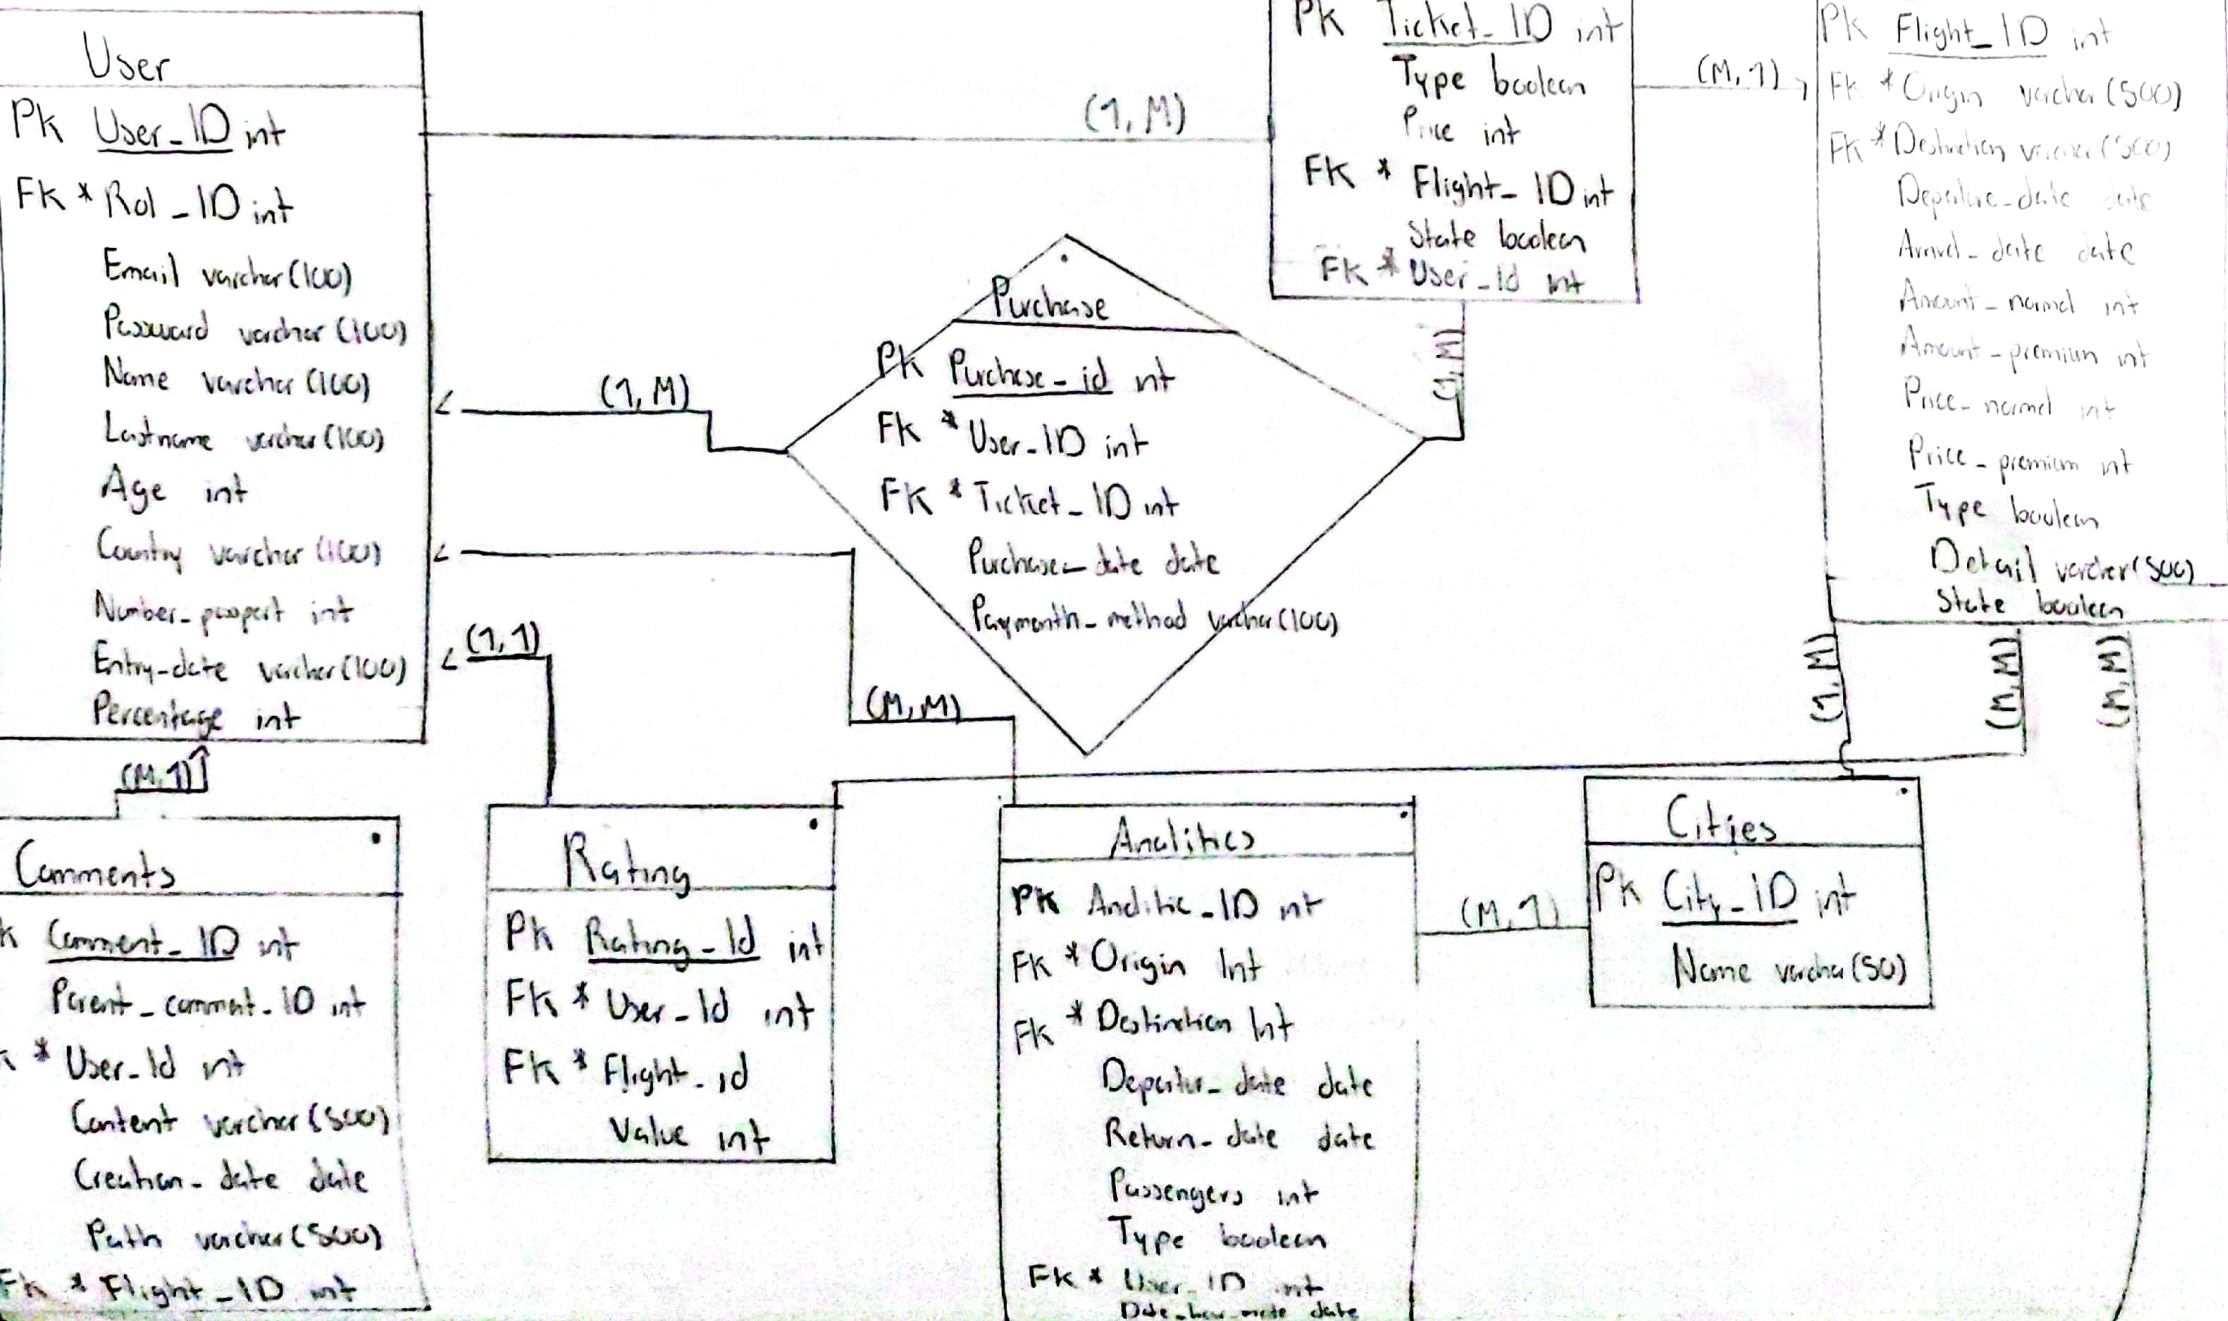 User
PK User_ID int
FK * Rol_ID int
Email varchar(100)
Password varchar(100)
Name varchar(100)
Lastname varchar(100)
Age int
Country varchar(100)
Number_pasport int
Entry-date varchar(100)
Percentage int
(1,M)
PK Ticket_ID int
Type boolean
Price int
FK * Flight_ID int
State boolean
FK * User_Id int
(M,1)
PK Flight_ID int
FK * Origin varchar(500)
FK * Destination varchar(500)
Departure_date date
Arrival_date date
Amount_normal int
Amount_premium int
Price_normal int
Price_premium int
Type boolean
Detail varchar(500)
State boolean
(1,M)
(1,M)
Purchase
PK Purchase_id int
FK * User_ID int
FK * Ticket_ID int
Purchase_date date
Paymonth_method varchar(100)
(1,1)
(M,M)
(1,M)
(M,M)
(M,M)
(M,1)
Comments
K Comment_ID int
Parent_commet_ID int
K * User_Id int
Content varchar(500)
Creation_date date
Path varchar(500)
FK * Flight_ID int
Rating
PK Rating_Id int
FK * User_Id int
FK * Flight_id
Value int
Analitics
PK Analitic_ID int
FK * Origin Int
FK * Destination Int
Departur_date date
Return_date date
Passengers int
Type boolean
FK * User_ID int
date
(M,1)
Cities
PK City_ID int
Name varchar(50)